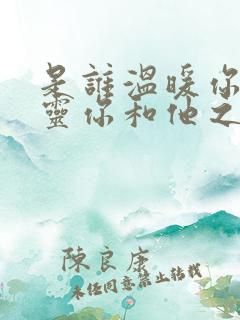 是誰溫暖你
靈你和他之
陳良康
未經同意禁止轉載